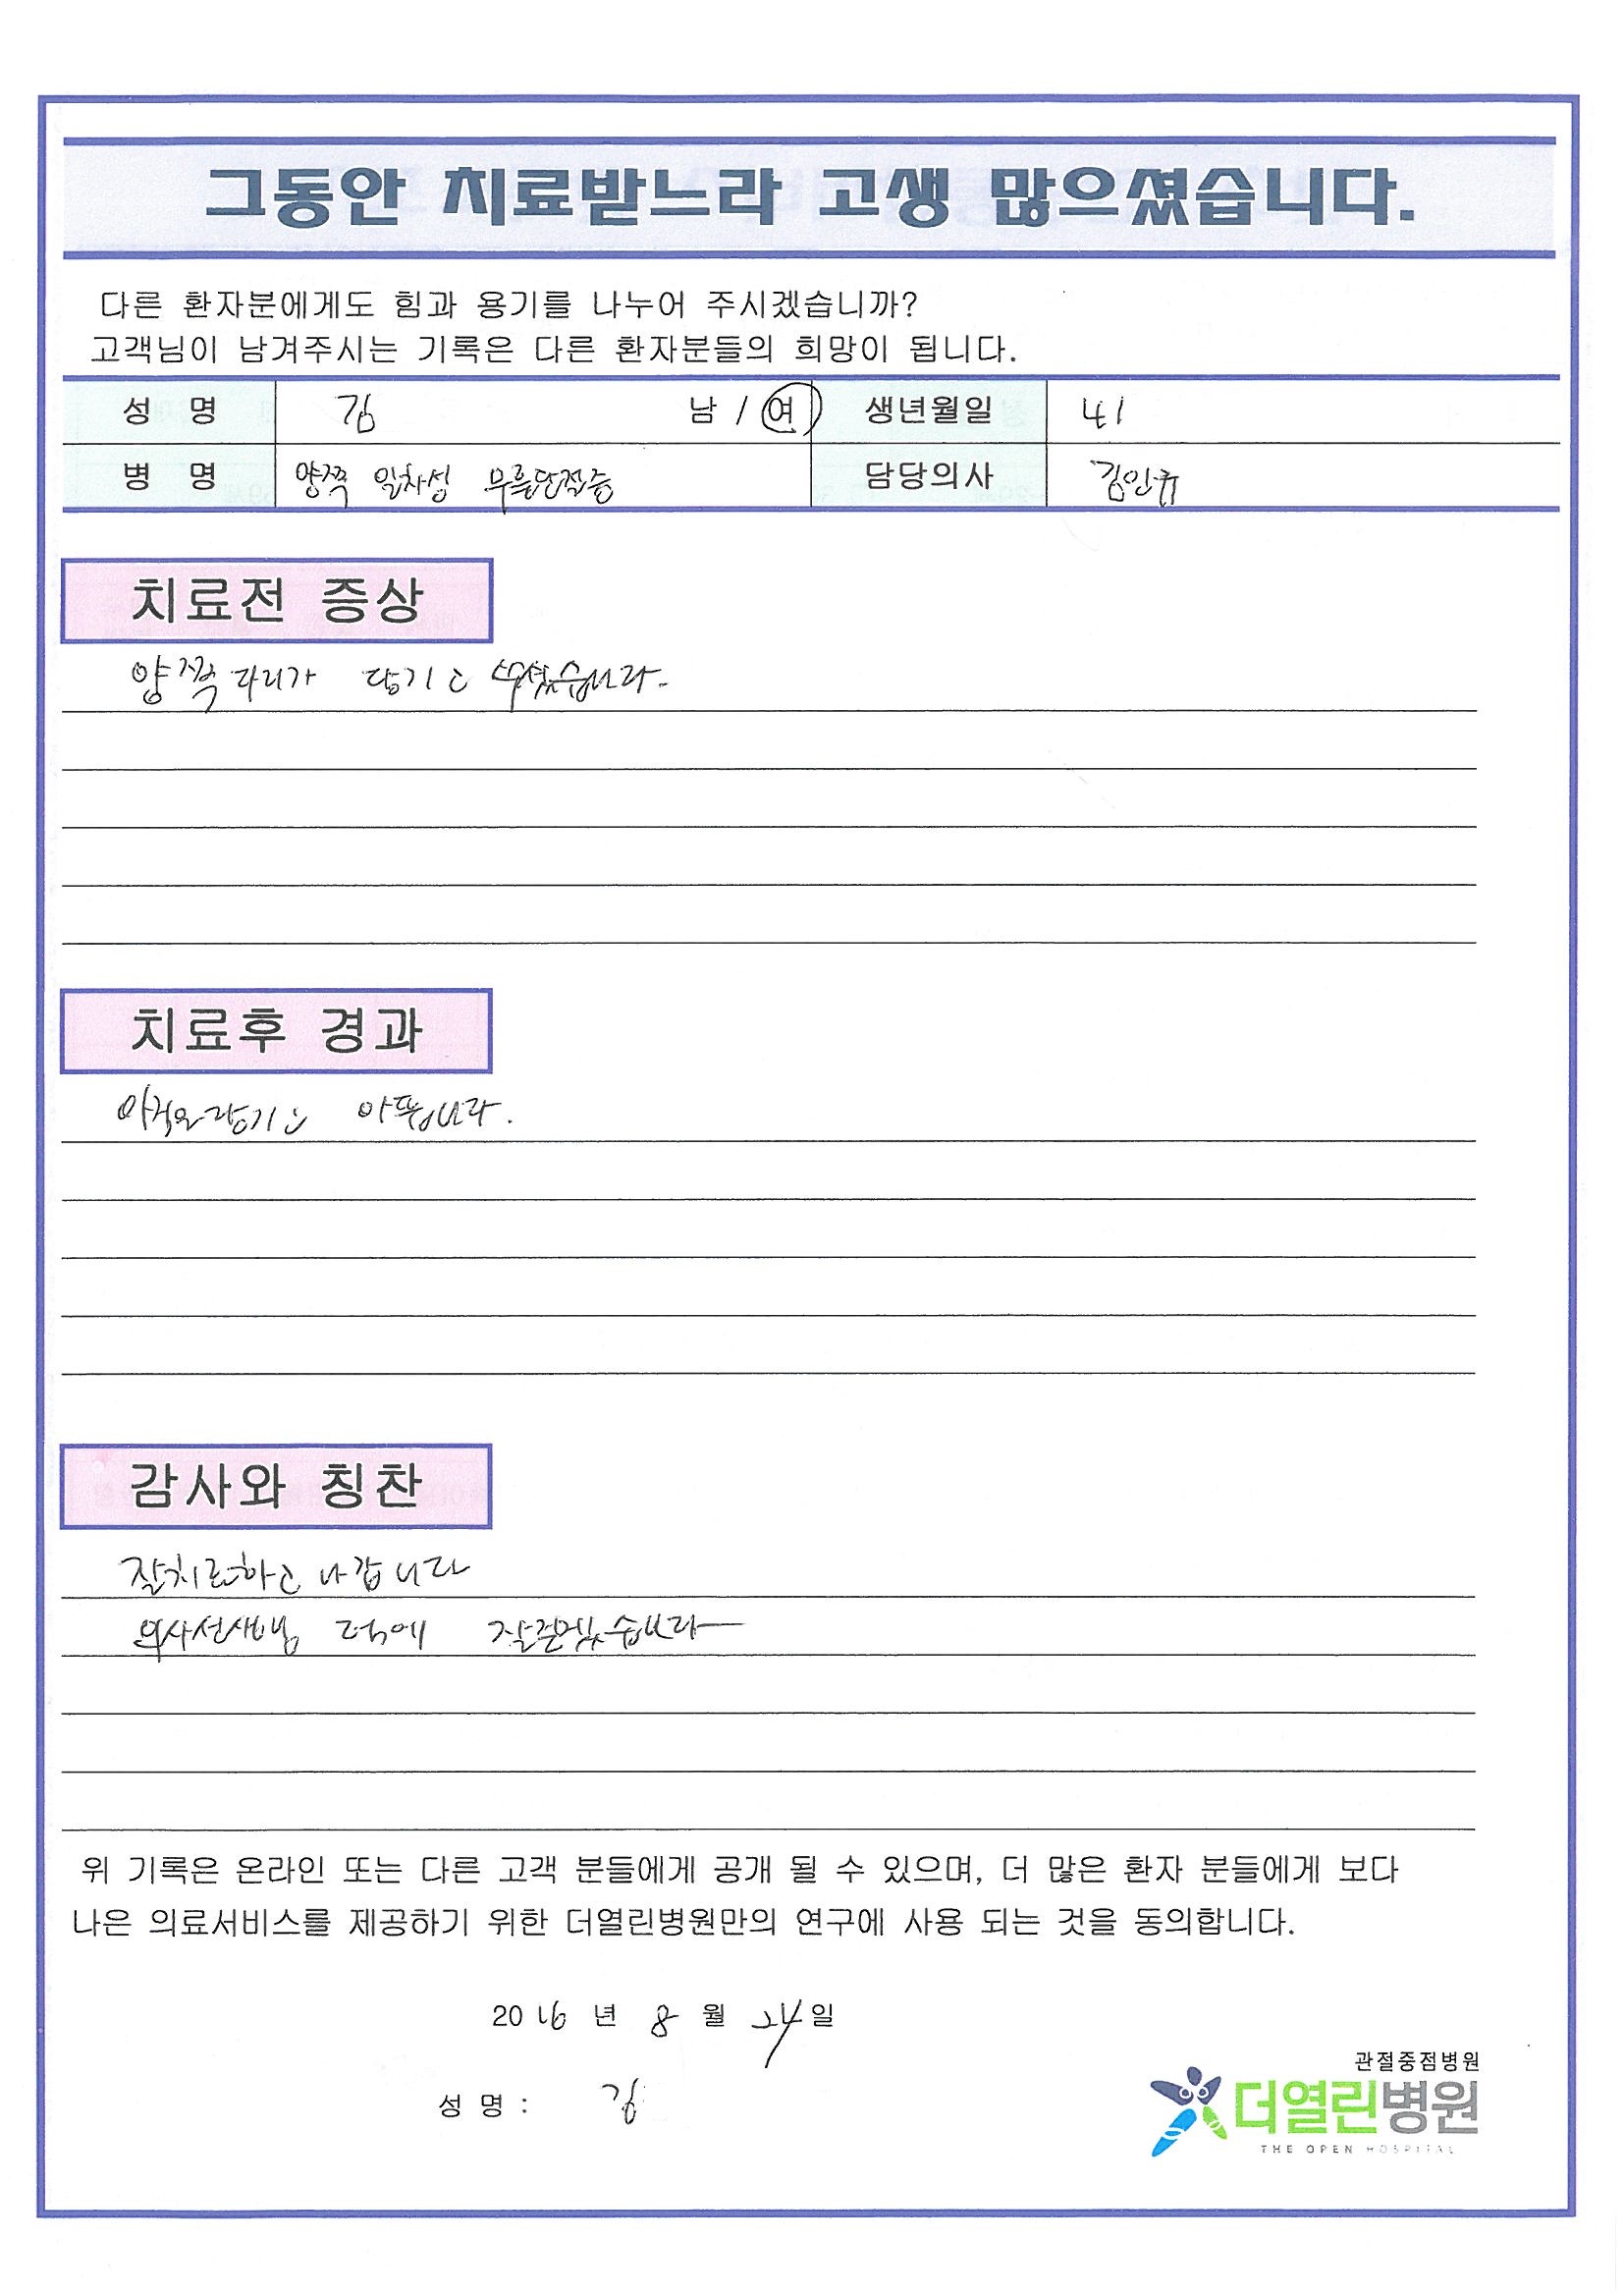 그동안 치료받느라 고생 많으셨습니다.
다른 환자분에게도 힘과 용기를 나누어 주시겠습니까?
고객님이 남겨주시는 기록은 다른 환자분들의 희망이 됩니다.
성 명 김 남 / 여 생년월일 41
병 명 양쪽 일차성 무릎관절증 담당의사 김인규
치료전 증상
양쪽다리가 당기고 쑤셨습니다.
치료후 경과
아직은당기고 아픕니다.
감사와 칭찬
잘치료하고 나갑니다
의사선생님 덕에 잘걷겠습니다
위 기록은 온라인 또는 다른 고객 분들에게 공개 될 수 있으며, 더 많은 환자 분들에게 보다
나은 의료서비스를 제공하기 위한 더열린병원만의 연구에 사용 되는 것을 동의합니다.
2016 년 8 월 24일
성 명 : 김
관절중점병원
더열린병원
THE OPEN HOSPITAL